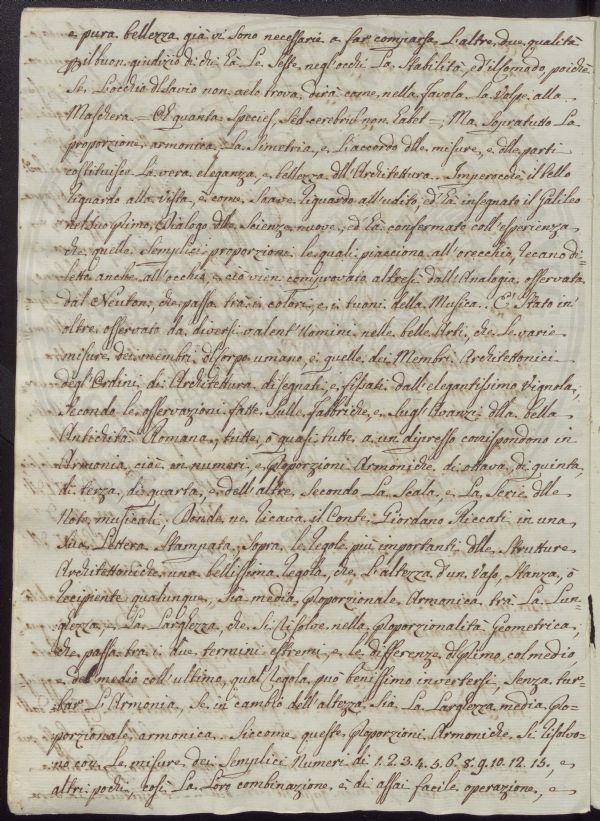 e pura bellezza già vi sono necessarie a far comparse L'altre due qualità
p il buon giudizio di chi hà Le Seste negl'occhi La Stabilità, ed il Comodo, poichè
Se L'occhio dl Savio non ce lo trova, dirà come nella favola La Volpe alla
Maschera = O quanta Species, Sed cerebrũ non habet =, Ma Sopratutto La
proporzione armonica, La Simetria, e L'accordo dlle misure, e dlle parti
costituisce La vera eleganza, e bellezza dll'Architettura. Imperocchè il bello
riguardo alla vista, è come Soave riguardo all'udito, ed hà insegnato il Galileo
nel suo primo Dialogo dlle Scienze nuove, ed hà confermato coll'esperienza
che quelle Semplici proporzioni le quali piacciono all'orecchio, recano di-
letto anche all'occhio, e ciò vien comprovato altresì dall'Analogia, osservata
dal Neuton, che passa trà i colori, e i tuoni della Musica. E' Stato in
oltre osservato da diversi valent'Uomini nelle belle Arti, che Le varie
misure dei membri dl Corpo umano, e quelle dei Membri Architettonici
degl'Ordini di Architettura disegnati, e fissati dall'elegantissimo Vignola,
Secondo le osservazioni fatte Sulle Fabbriche, e Sugl'Avanzi dlla bella
Antichità Romana, tutte, o quasi tutte a un dipresso corrispondono in
Armonia, cioè in numeri, e Proporzioni Armoniche, di ottava, di quinta,
di terza, di quarta, e dell'altre, Secondo La Scala, e La Serie dlle
Note musicali, Donde ne ricava il Conte Giordano Riccati in una
Sua Lettera Stampata Sopra le regole più importanti dlle Strutture
Architettoniche una bellissima regola, che L'altezza d'un Vaso, Stanza, ò
recipiente qualunque, Sia media Proporzionale Armonica trà La Lun-
ghezza, e La Larghezza, che Si risolve nella Proporzionalità Geometrica,
che passa tra i due termini estremi, e le differenze dl primo col medio
e del medio coll'ultimo, qual regola può benissimo invertersi, Senza tur-
bar L'Armonia, Se in cambio dell'altezza Sia La Larghezza media Pro-
porzionale armonica. Siccome queste Proporzioni Armoniche Si risolvo-
no con Le misure dei Semplici Numeri di 1. 2. 3. 4. 5. 6. 8. 9. 10. 12. 15., e
altri pochi, così La Loro combinazione è di assai facile operazione, e